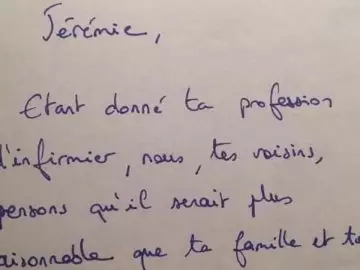 Jérémie,
Etant donné ta profession
d'infirmier, nous, tes voisins,
pensons qu'il serait plus
raisonnable que ta famille et to